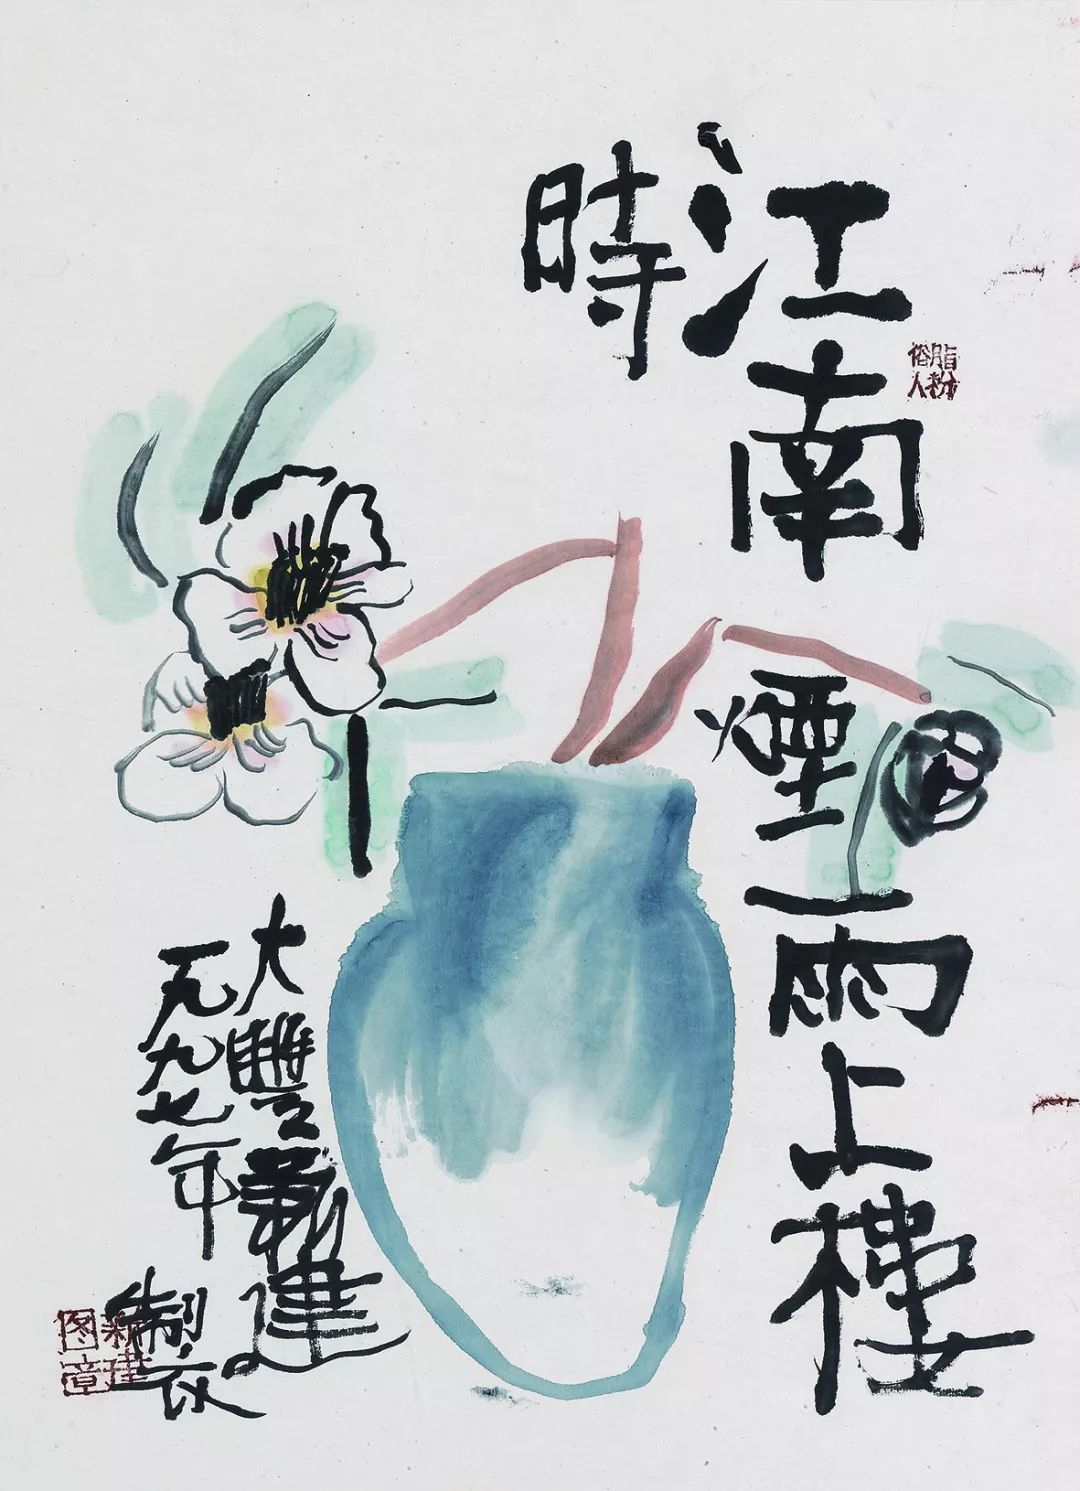 江南煙雨上樓
時
脂粉俗人
大豐新建
一九九七年製
新建图章